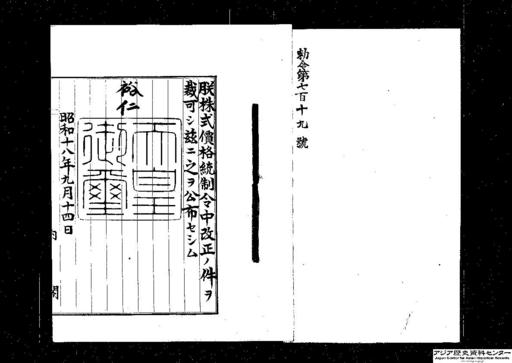 勅令第七百十九號
朕株式價格統制令中改正ノ件ヲ
裁可シ茲ニ之ヲ公布セシム
裕仁
天皇御璽
昭和十八年九月十四日
内閣
アジア歴史資料センター
Japan Center for Asian Historical Records